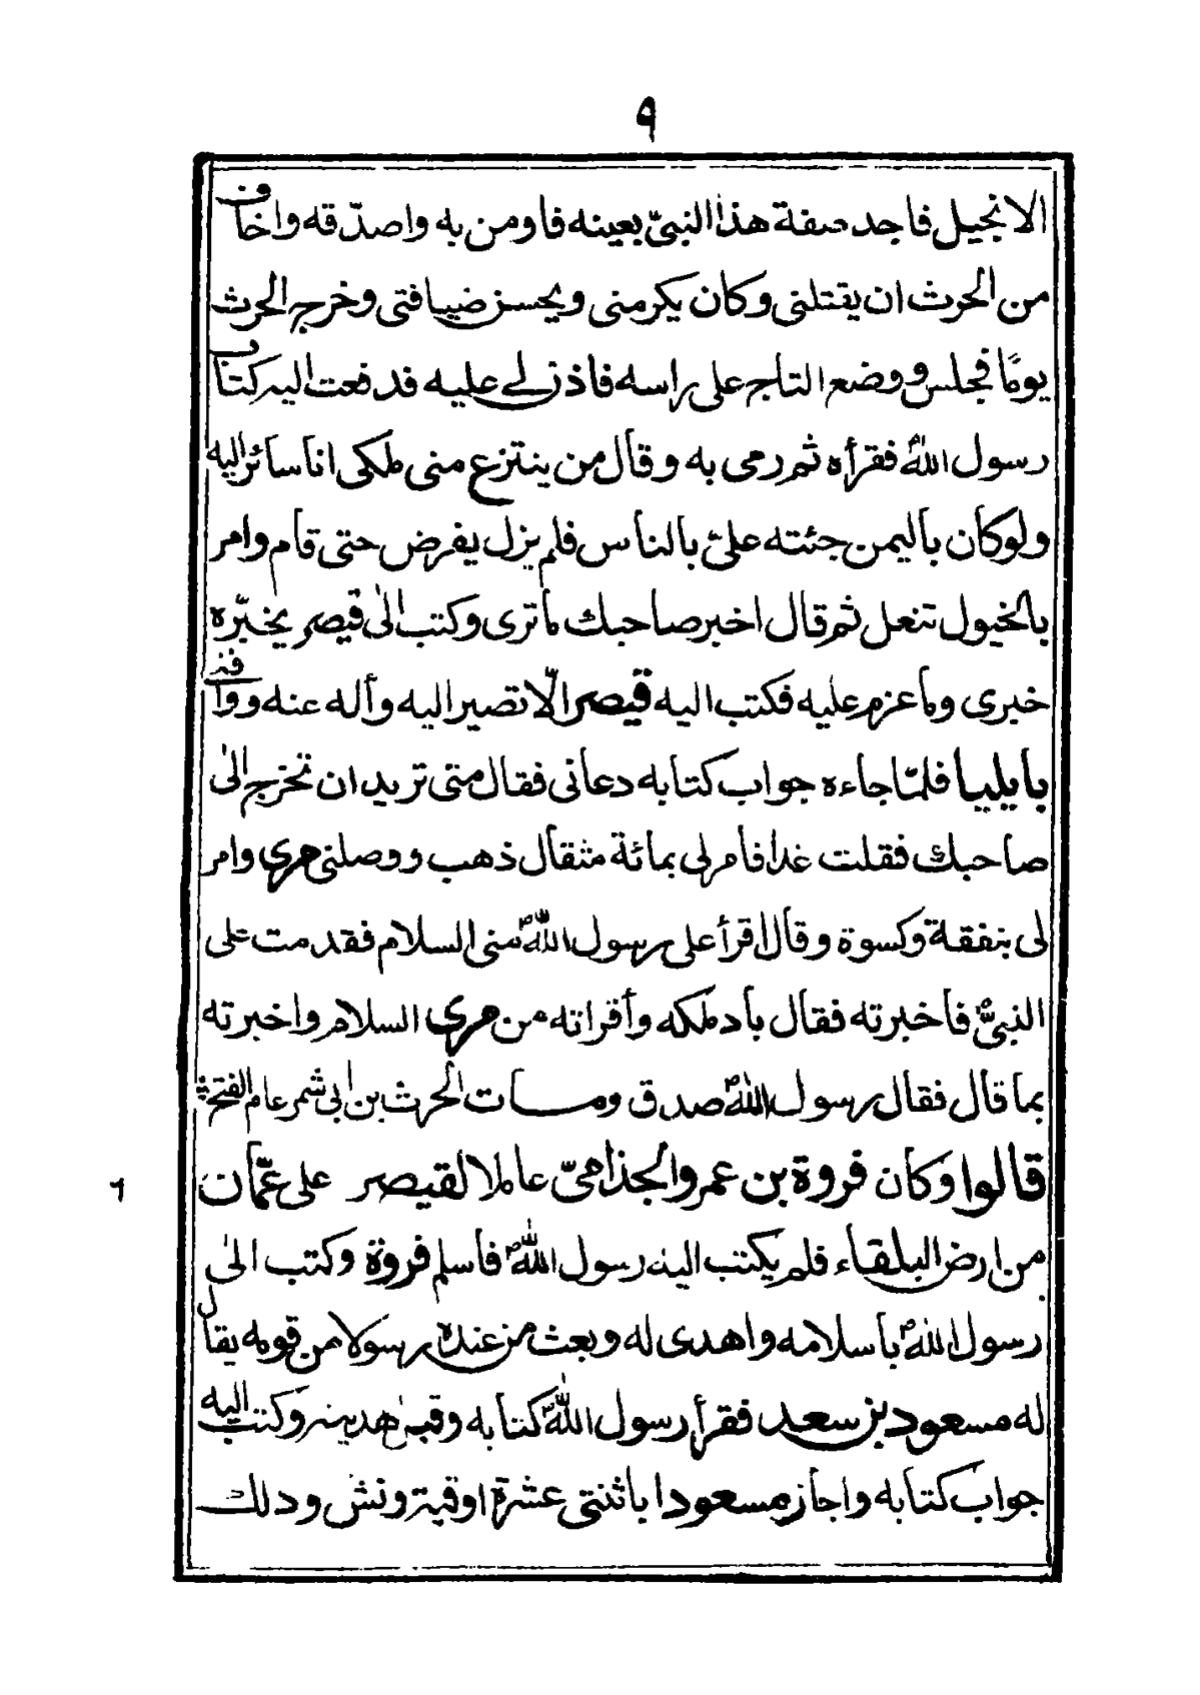 ٩
الانجيل فاجد صفة هذا النبىّ بعينه فاومن به واصدّقه واخاف
من الحرث ان يقتلنى وكان يكرمنى ويحسن ضيافتى وخرج الحرث
يومًا فجلس ووضع التاج على راسه فاذن لے عليه فدفعت اليه كتاب
رسول اللهؐ فقرأه ثم رمى به وقال من ينتزع منى ملكى انا سائر اليه
ولوكان باليمن جئته علىّ بالناس فلم يزل يفرض حتى قام وامر
بالخيول تنعل ثم قال اخبر صاحبك ما ترى وكتب الىٰ قيصر يخبّره
خبرى وما عزم عليه فكتب اليه قيصر الّا تصير اليه وأله عنه ووافنى
بايليا فلمّا جاءه جواب كتابه دعانى فقال متى تريد ان تخرج الىٰ
صاحبك فقلت غدا فامر لى بمائة مثقال ذهب ووصلنى مرى وامر
لى بنفقة وكسوة وقال اقرأ على رسول اللهؐ منى السلام فقدمت على
النبىؐ فاخبرته فقال باد ملكه وأقراته من مرى السلام واخبرته
بما قال فقال رسول اللهؐ صدق ومات الحرث بن ابى شمر عام الفتح ؞
قالوا وكان فروة بن عمرو الجذامىّ عاملا لقيصر على عمّان
٦
من ارض البلقاء فلم يكتب اليه رسول اللهؐ فاسلم فروة وكتب الىٰ
رسول اللهؐ باسلامه واهدى له وبعث من عنده رسولا من قومه يقال
له مسعود بن سعد فقرأ رسول اللهؐ كتابه وقبل هديته وكتب اليه
جواب كتابه واجاز مسعودا باثنتى عشرة اوقية ونش وذلك